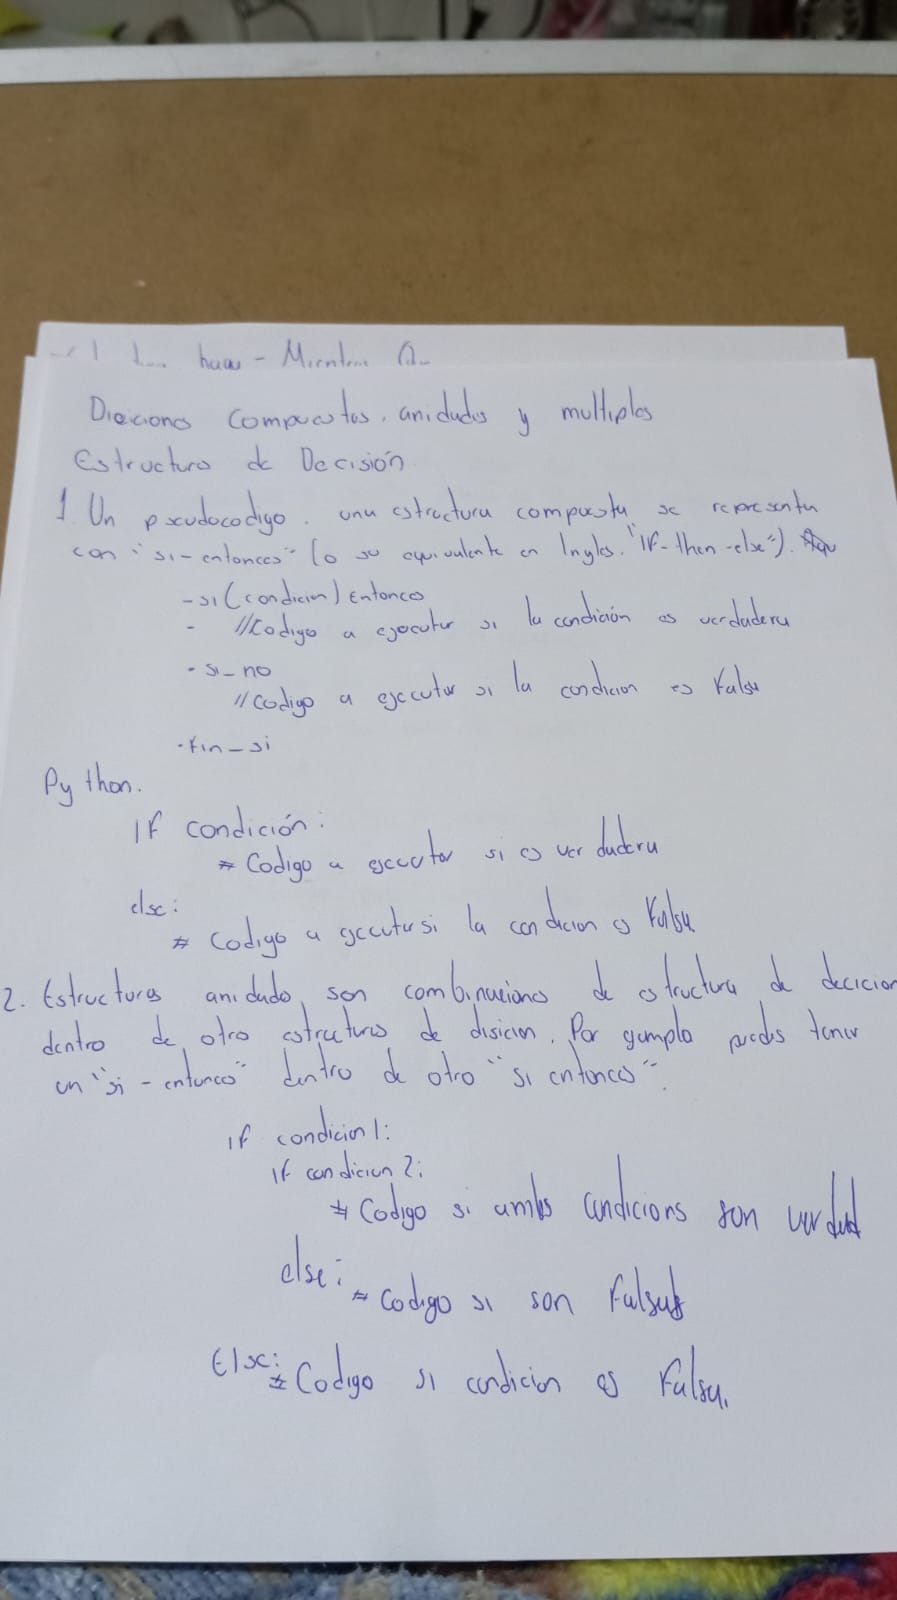 haces - Mientras Q
Diciciones Compuestas, anidadas y multiples
Estructura de Decisión
1. Un pseudocodigo. una estructura compuesta se representa
con "si-entonces" (o su equivalente en Ingles. "IF-then-else").
- si (condicion) Entonces
- //Codigo a ejecutar si la condición es verdadera
- si_no
//Codigo a ejecutar si la condicion es Falsa
- Fin_si
Python.
IF condición:
# Codigo a ejecutar si es verdadera
else:
# Codigo a ejecutar si la condicion es Falsa.
2. Estructuras anidado, son combinaciones de estructura de decicion
dentro de otro estructuras de disicion. Por ejemplo puedes tener
un "si-entonces" dentro de otro "si entonces".
if condicion 1:
if condicion 2:
# Codigo si ambas condicions son verdad
else:
# Codigo si son Falsas
Else:
# Codigo si condicion es Falsa.